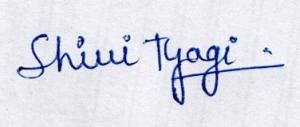 Shivi Tyagi.